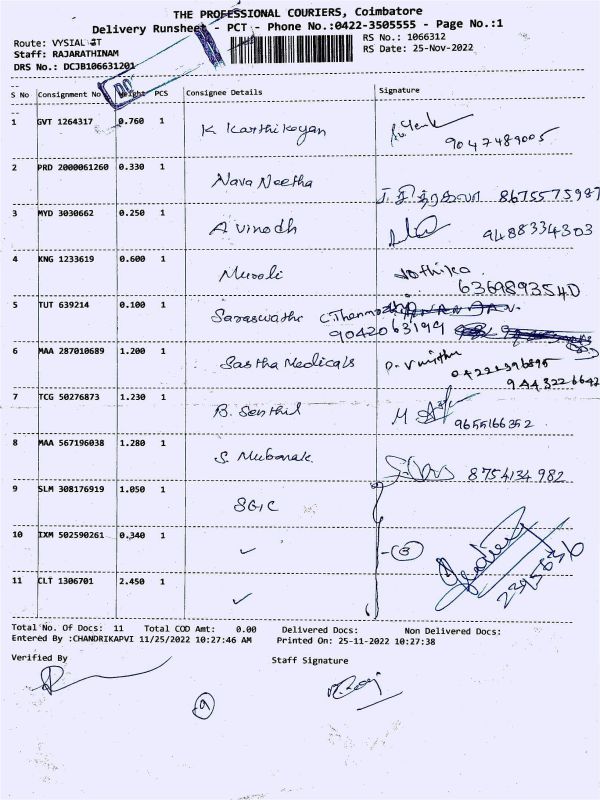 THE PROFESSIONAL COURIERS, Coimbatore
Delivery Runsheet - PCT - Phone No.:0422-3505555 - Page No.:1
Route: VYSIAL ST
RS No.: 1066312
Staff: RAJARATHINAM
RS Date: 25-Nov-2022
DRS No.: DCJB106631201
S No Consignment No Weight PCS Consignee Details Signature
1 GVT 1264317 0.760 1 K Karthikeyan 9047489005
2 PRD 2000061260 0.330 1 Nava Neetha 8675575987
3 MYD 3030662 0.250 1 A vinodh 9488334303
4 KNG 1233619 0.600 1 Murali Jothika
6369893540
5 TUT 639214 0.100 1 Saraswathi C.Thenmozhi
9042063199
6 MAA 287010689 1.200 1 Sastha Medicals
9443226642
7 TCG 50276873 1.230 1 B. Senthil 9655166352
8 MAA 567196038 1.280 1 S. Mubarak 8754134982
9 SLM 308176919 1.050 1 SGIC
10 IXM 502590261 0.340 1 ✓ - 3
11 CLT 1306701 2.450 1 ✓
Total No. Of Docs: 11 Total COD Amt: 0.00 Delivered Docs: Non Delivered Docs:
Entered By :CHANDRIKAPVI 11/25/2022 10:27:46 AM Printed On: 25-11-2022 10:27:38
Verified By Staff Signature
9